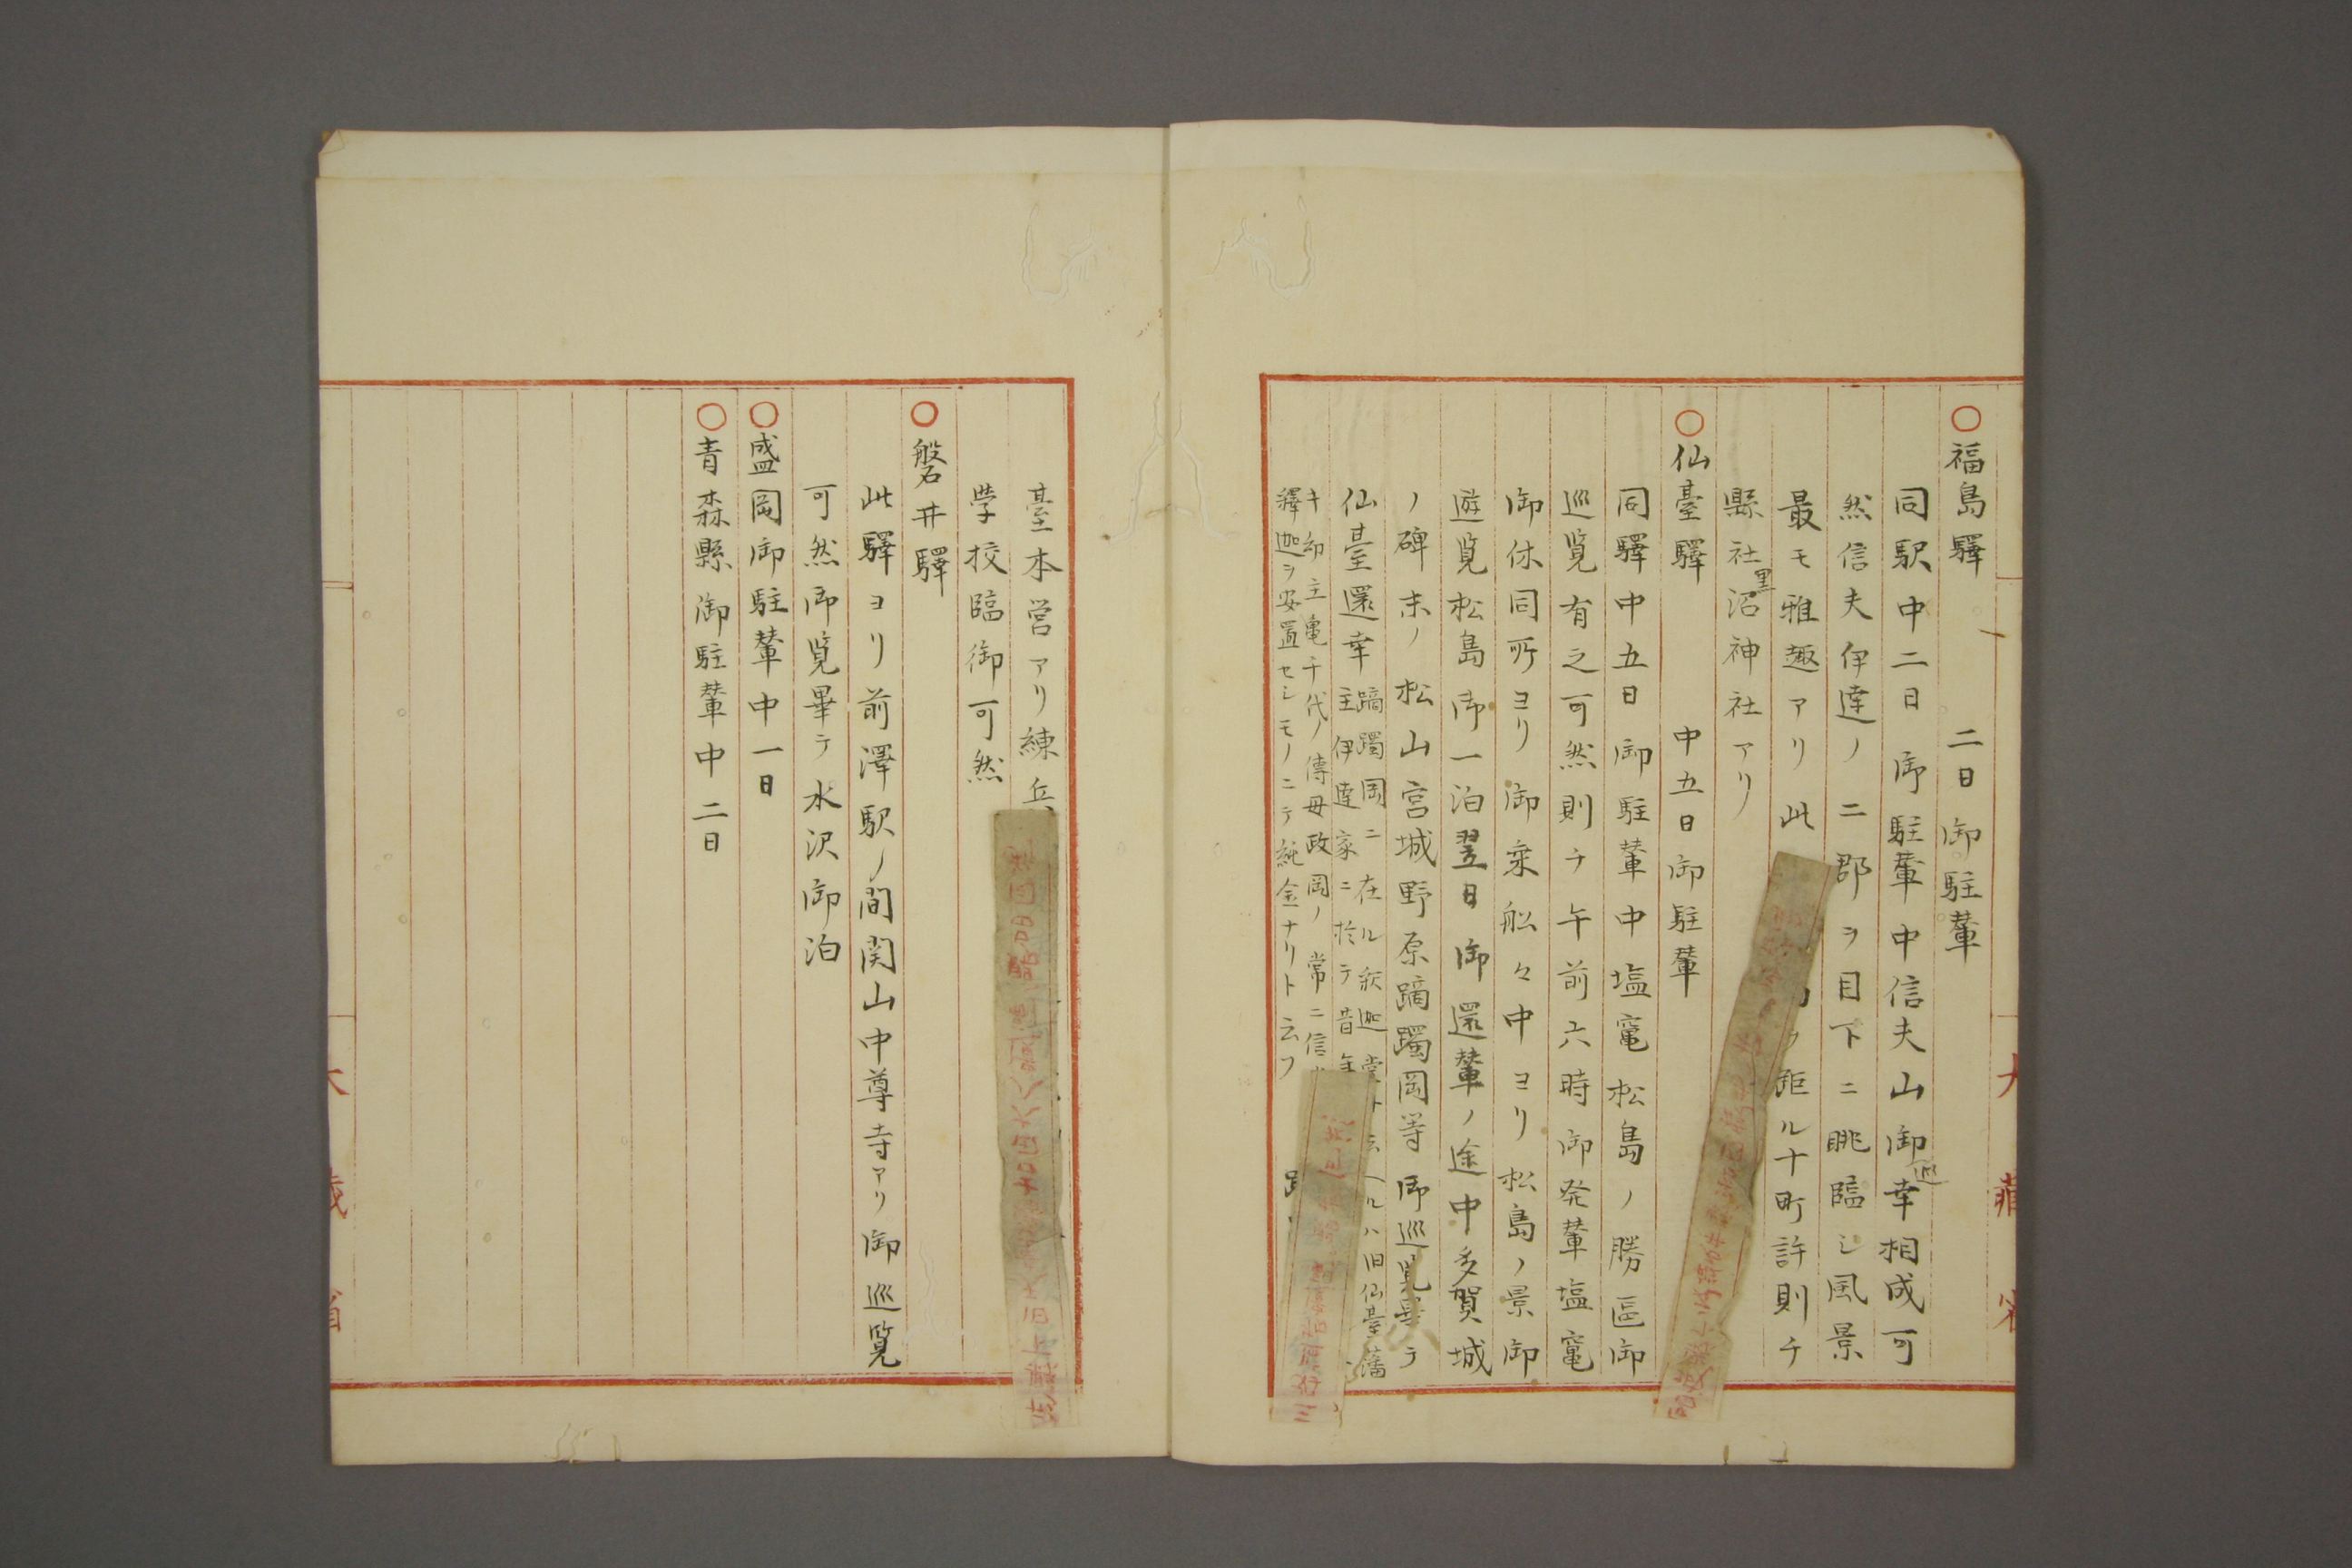 ○福島驛 二日御駐輦
同駅中二日御駐輦中信夫山御巡幸相成可
然信夫伊達ノ二郡ヲ目下ニ眺臨シ風景
最モ雅趣アリ此
ヲ距ル十町許則チ
縣社黒沼神社アリ
○仙臺驛 中五日御駐輦
同驛中五日御駐輦中塩竃松島ノ勝區御
巡覧有之可然則チ午前六時御発輦塩竃
御休同所ヨリ御乗船々中ヨリ松島ノ景御
遊覧松島御一泊翌日御還輦ノ途中多賀城
ノ碑末ノ松山宮城野原躑躅岡等御巡覧畢テ
仙臺還幸
躑躅岡ニ在ル釈迦堂ト云ヘルハ旧仙臺藩
主伊達家ニ於テ昔年
キ幼主亀千代ノ傳母政岡ノ常ニ信
釋迦ヲ安置セシモノニテ純金ナリト云フ
臺本営アリ練兵
学校臨御可然
○磐井驛
此驛ヨリ前澤駅ノ間関山中尊寺アリ御巡覧
可然御覧畢テ水沢御泊
○盛岡御駐輦中一日
○青森縣御駐輦中二日